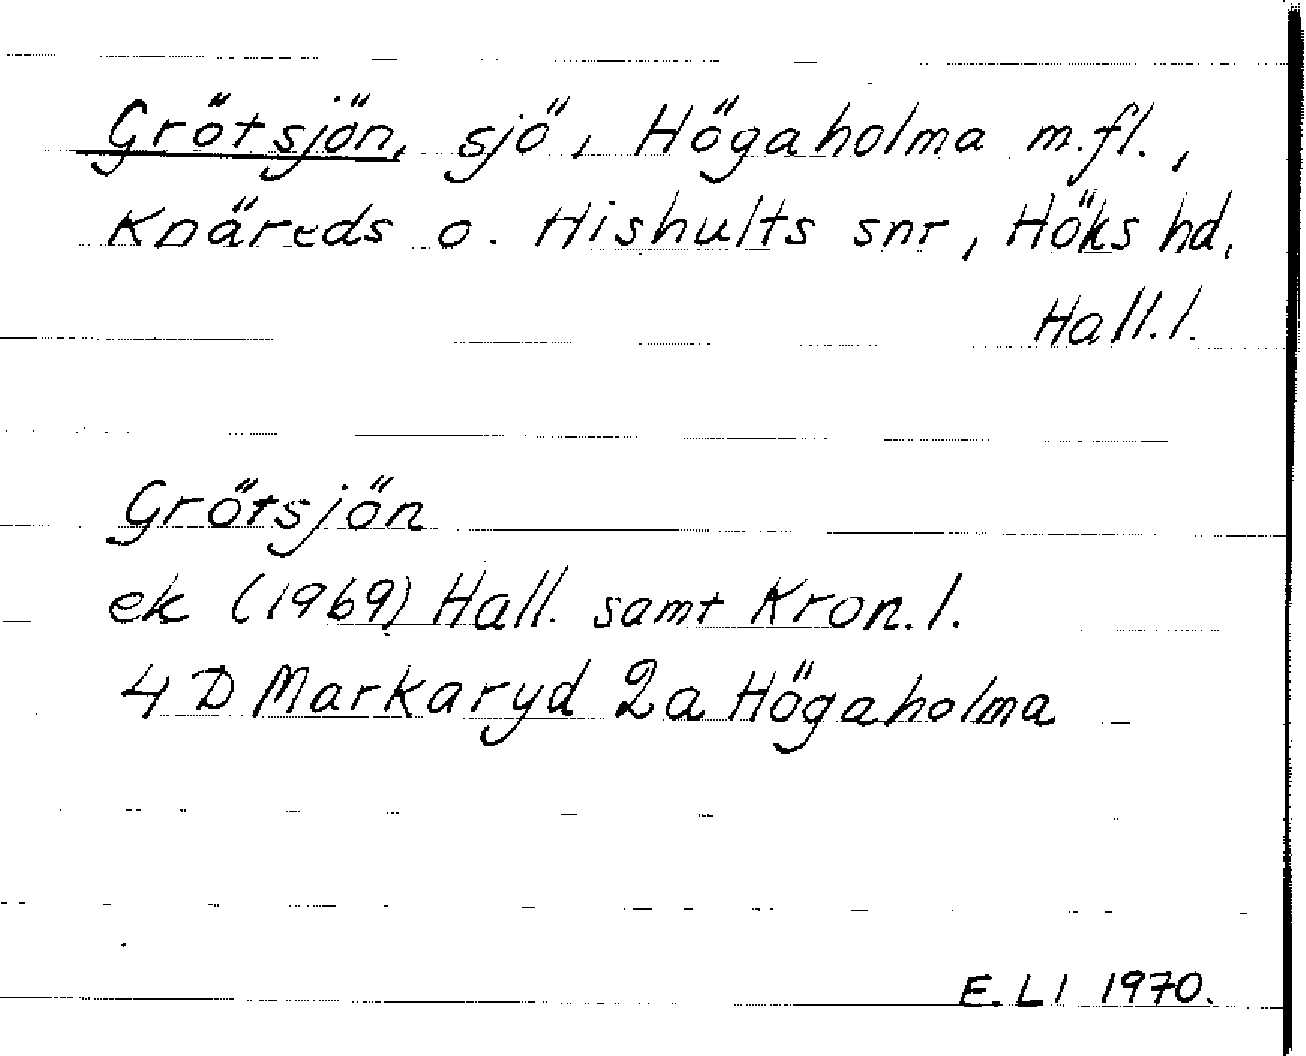 Grötsjön, sjö, Högaholma m.fl.,
Knäreds o. Hishults snr, Höks hd,
Hall.l.
Grötsjön
ek (1969) Hall. samt Kron.l.
4 D Markaryd 2a Högaholma
E.LI 1970.